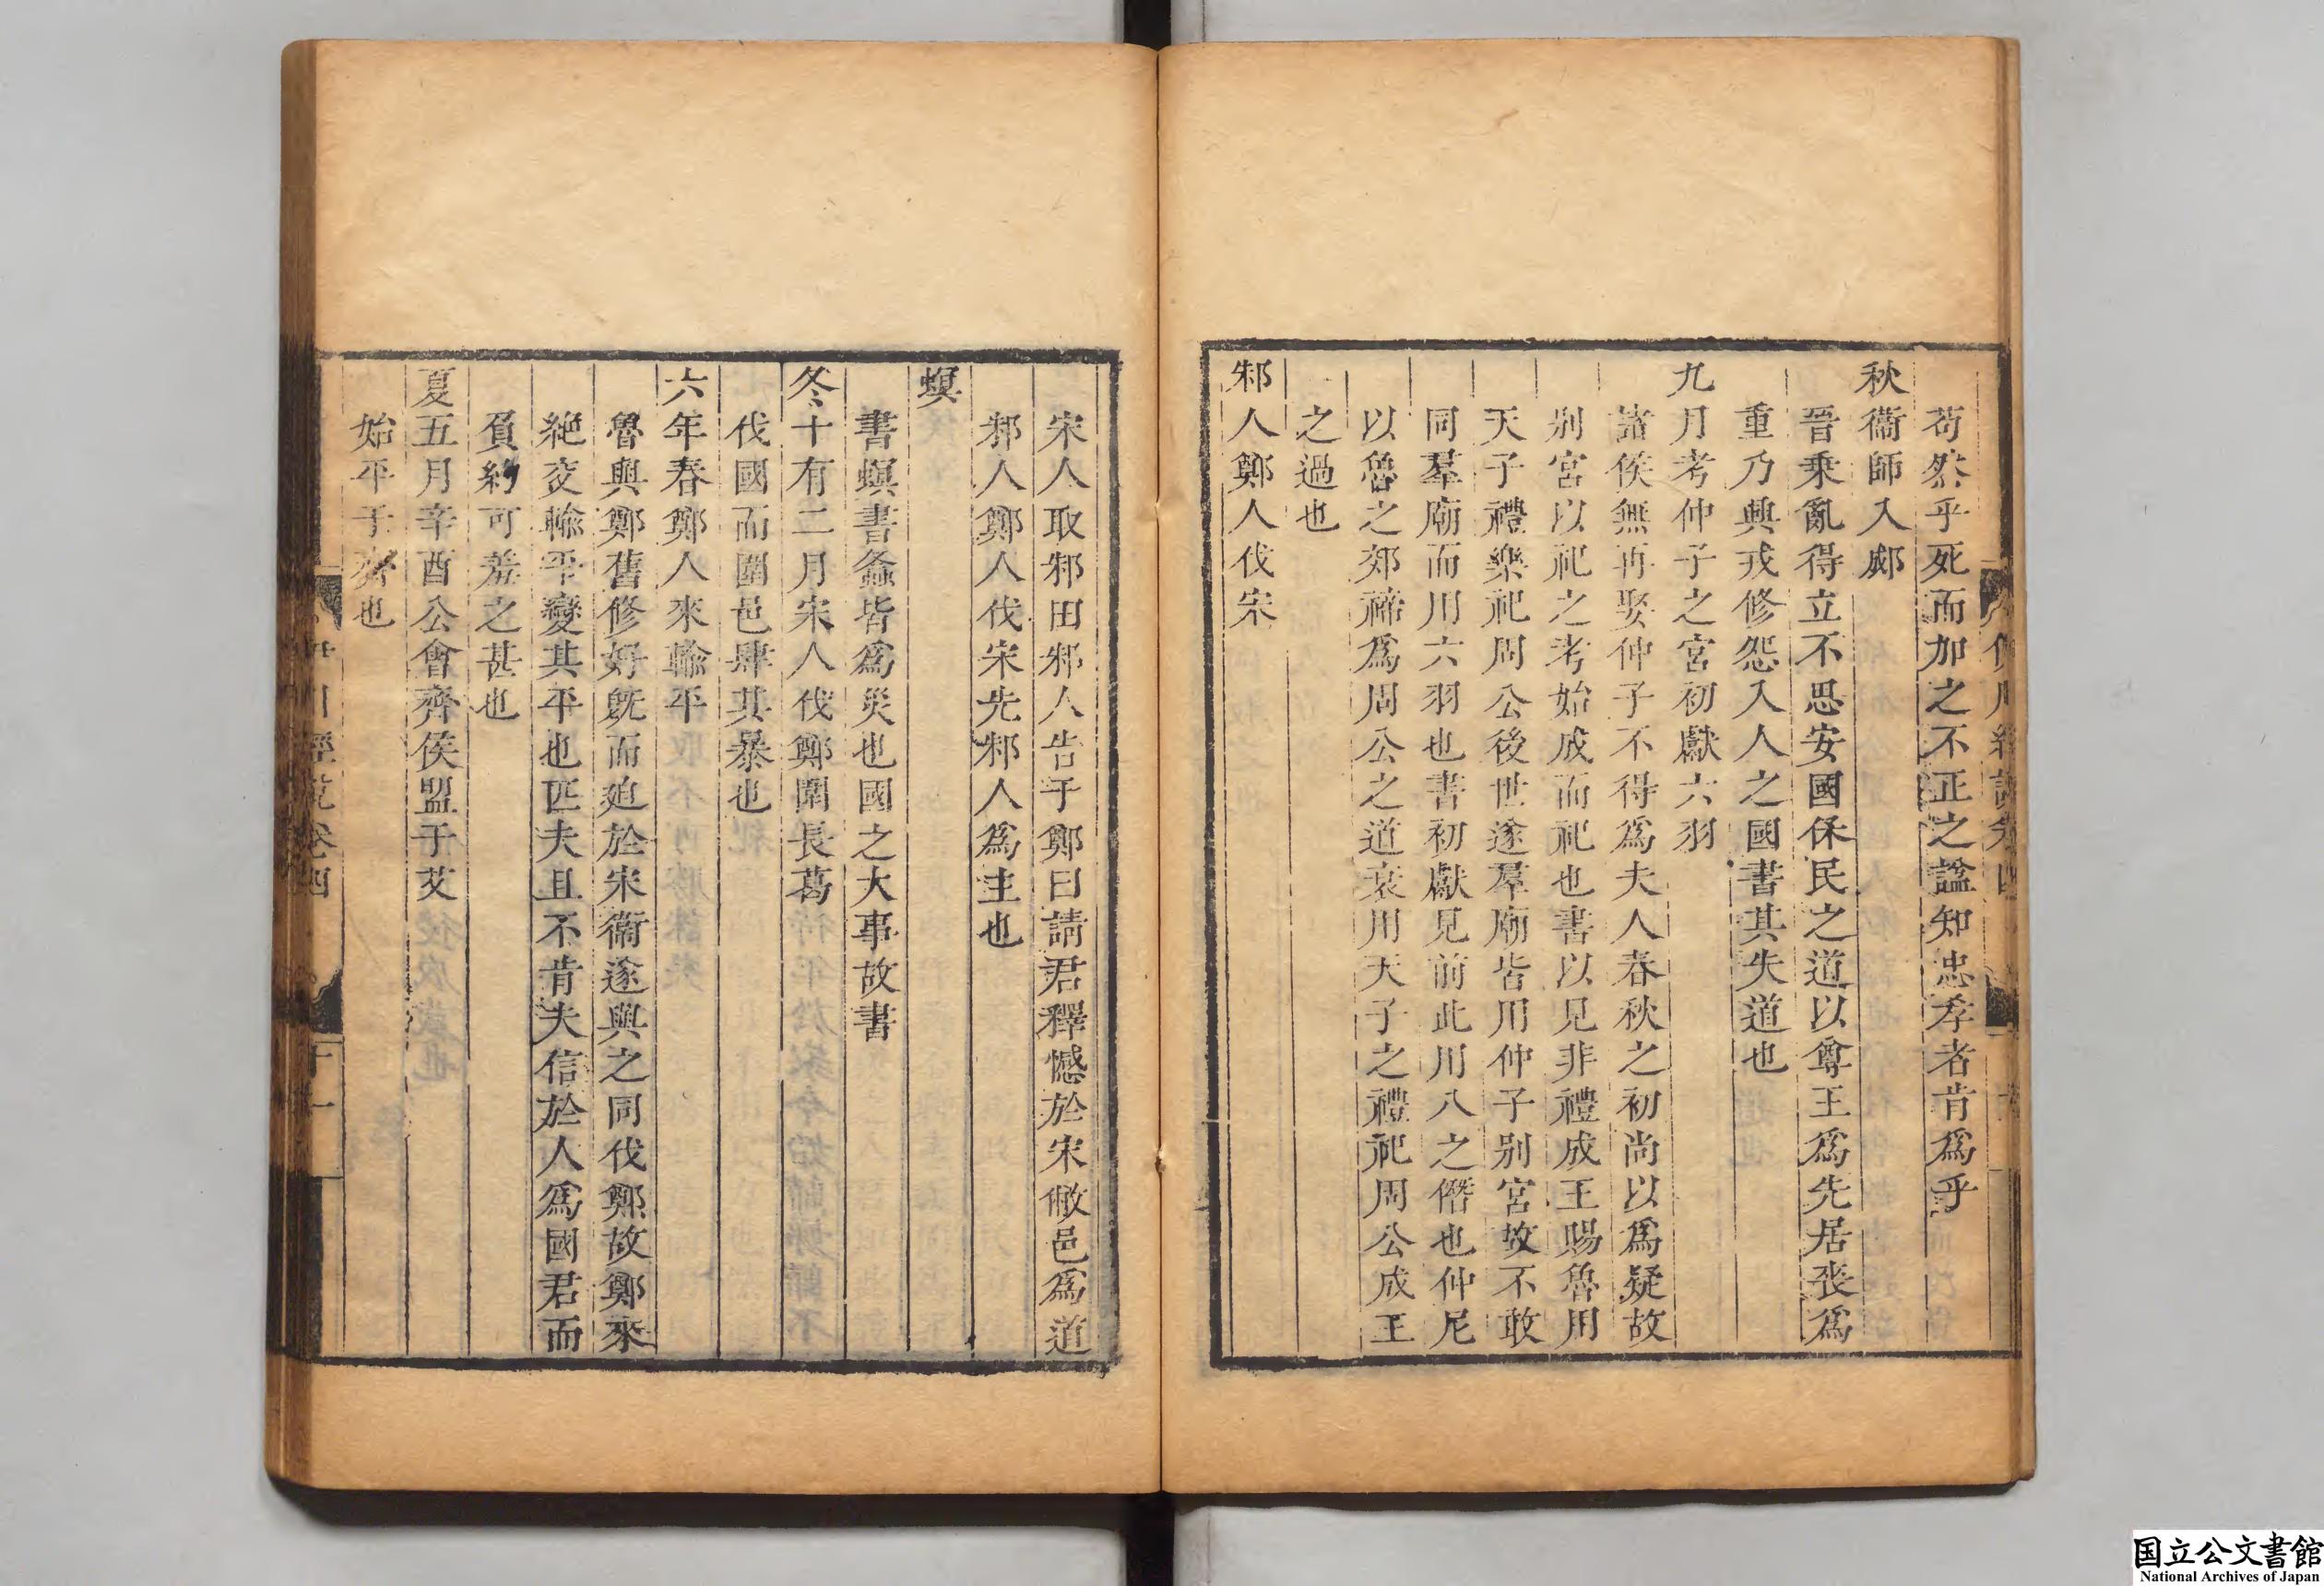 苟然乎死而加之不正之諡知忠孝者肯爲乎
秋衞師入郕
晉乘亂得立不思安國保民之道以尊王爲先居喪爲
重乃興戎修怨入人之國書其失道也
九月考仲子之宮初獻六羽
諸侯無再娶仲子不得爲夫人春秋之初尚以爲疑故
別宮以祀之考始成而祀也書以見非禮成王賜魯用
天子禮樂祀周公後世遂羣廟皆用仲子別宮故不敢
同羣廟而用六羽也書初獻見前此用八之僭也仲尼
以魯之郊禘爲周公之道衰用天子之禮祀周公成王
之過也
邾人鄭人伐宋
宋人取邾田邾人告于鄭曰請君釋憾於宋敝邑爲道
邾人鄭人伐宋先邾人爲主也
螟
書螟書螽皆爲災也國之大事故書
冬十有二月宋人伐鄭圍長葛
伐國而圍邑肆其暴也
六年春鄭人來輸平
魯與鄭舊修好旣而迫於宋衞遂與之同伐鄭故鄭來
絶交輸平變其平也匹夫且不肯失信於人爲國君而
負約可羞之甚也
夏五月辛酉公會齊侯盟于艾
始平于齊也
伊川經說卷四
十一
国立公文書館
National Archives of Japan